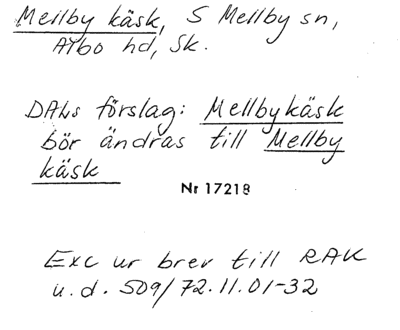 Mellby käsk, S Mellby sn,
Albo hd, Sk.
DALs förslag: Mellbykäsk
bör ändras till Mellby
käsk
Nr 17218
Exc ur brev till RAK
u.d. 509/72.11.01-32